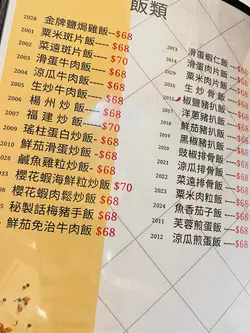 飯類
2028 金牌鹽焗雞飯--$68
2001 粟米斑片飯----$68
2002 菜遠斑片飯----$70
2003 滑蛋牛肉飯----$68
2004 涼瓜牛肉飯----$68
2005 生炒牛肉飯----$68
2006 楊州炒飯-----$68
2007 福建炒飯-----$70
2009 瑤柱蛋白炒飯-$68
2010 鮮茄滑蛋炒飯-$68
鹹魚雞粒炒飯-$68
櫻花蝦海鮮粒炒飯-$70
櫻花蝦肉鬆炒飯-$68
秘製話梅豬手飯-$68
鮮茄免治牛肉飯-$68
2013 滑蛋蝦仁飯
2014 滑蛋肉片飯
2029 粟米肉片飯
2016 生炒骨飯
2015 椒鹽豬扒飯
2017 洋蔥豬扒飯
2018 鮮茄豬扒飯
2019 黑椒豬扒飯
2020 豉椒排骨飯
2021 涼瓜排骨飯
2022 菜遠排骨飯
2023 粟米肉粒飯
2024 魚香茄子飯
2011 芙蓉煎蛋飯
2012 涼瓜煎蛋飯